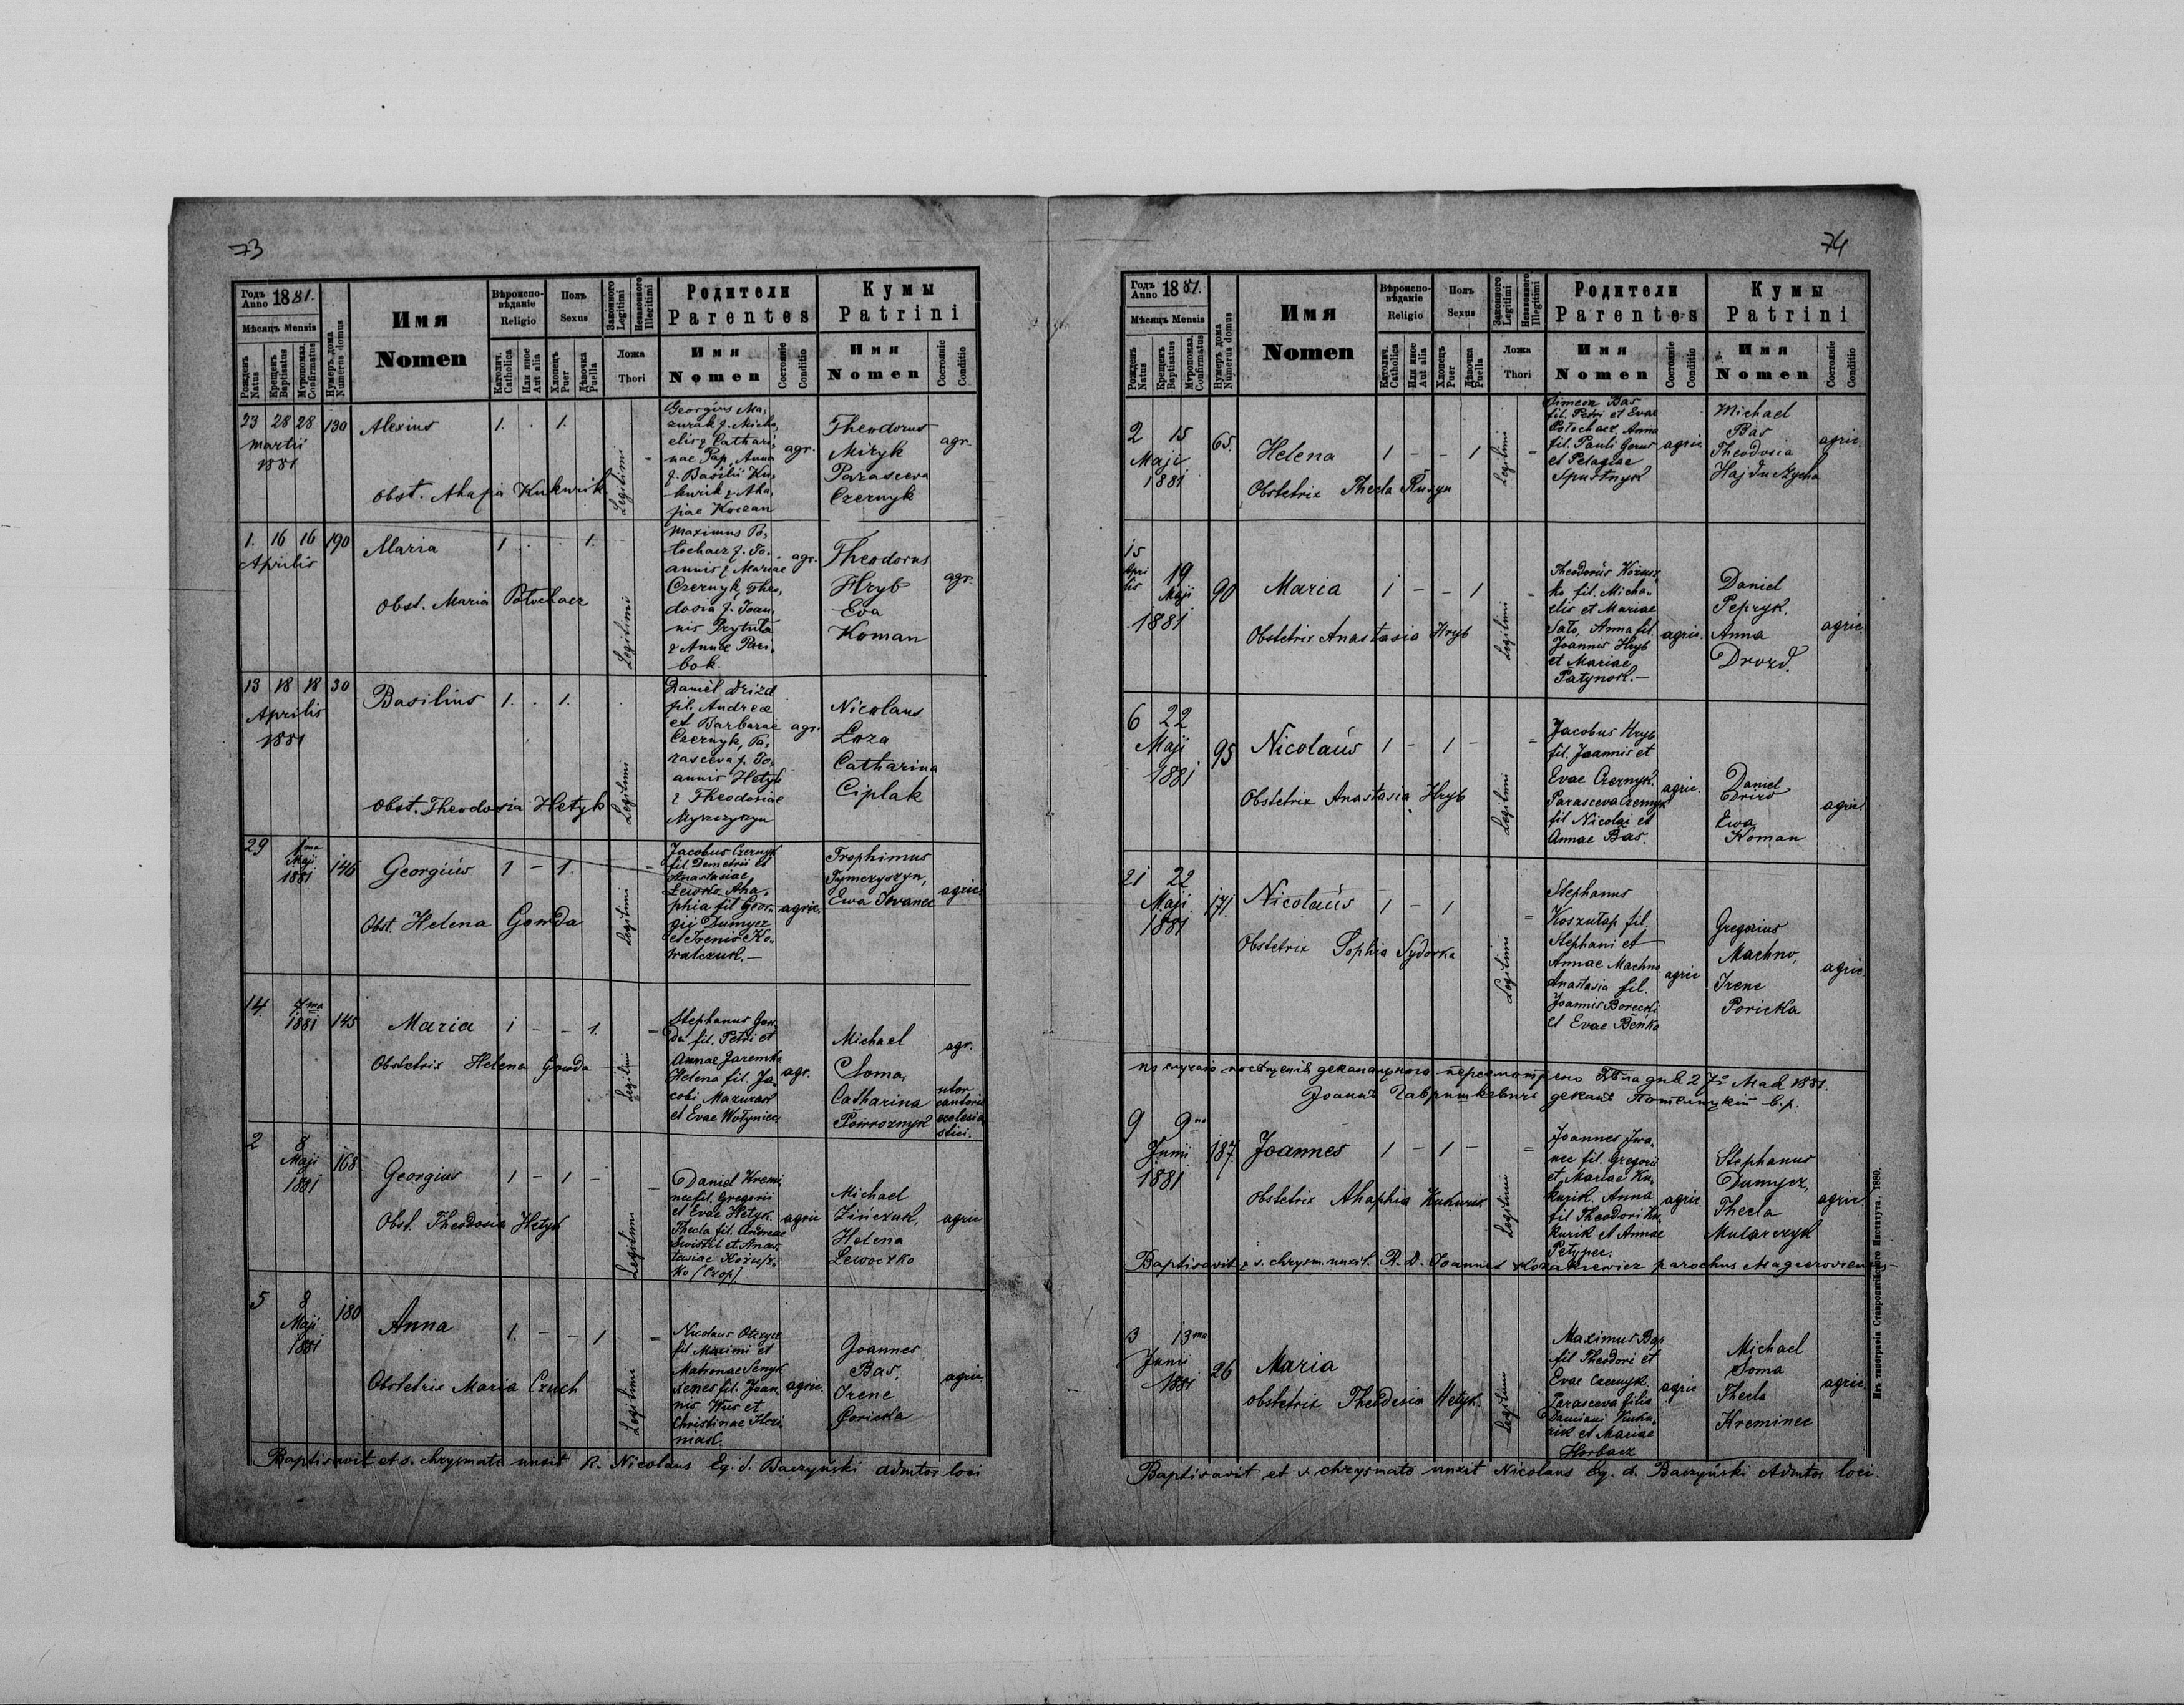 73
Годъ Anno 1881.
Мѣсяцъ Mensis
Рожденъ Natus
Крещенъ Baptisatus
Мѵропомаз. Confirmatus
Нумеръ дома Numerus domus
Имя
Nomen
Вѣроиспо-
вѣданіе
Religio
Католич. Catholica
Или иное Aut alia
Полъ
Sexus
Хлопецъ Puer
Дѣвочка Puella
Законного Legitimi
Незаконного Illegitimi
Ложа
Thori
Родители
Parentes
Имя
Nomen
Состояніе Conditio
Кумы
Patrini
Имя
Nomen
Состояніе Conditio
23 28 28 130
Martii
1881
Alexius 1. . 1.
Obst. Ahafia Kukurik
Legitimi
Georgius Ma-
zurak f. Micha-
elis & Cathari-
nae Pap, Anna
f. Basilii Ku-
kurik & Aha-
fiae Koczan
agr.
Theodorus
Mizyk
Parasceva
Czernyk
agr.
1. 16 16 190
Aprilis
Maria 1 . . 1.
Obst. Maria Potochacz
Legitimi
Maximus Po-
tochacz f. Jo-
annis & Mariae
Czernyk, Theo-
dosia f. Joan-
nis Prytuła
& Annae Pari-
bok.
agr.
Theodorus
Hryb
Eva
Koman
agr.
13 18 18 30
Aprilis
1881
Basilius 1. . 1.
Obst. Theodosia Hetyk
Legitimi
Daniel Drizd
fil. Andreae
et Barbarae
Czernyk, Pa-
rasceva f. Jo-
annis Hetyk
& Theodosiae
agr.
Nicolaus
Loza
Catharina
Ciplak
29 1ma
Maji
1881 146
Georgius 1 – 1.
Obst. Helena Gowda
Legitimi
Jacobus Czernyk
fil. Demetrii et
Anastasiae
Lewko, Aha-
phia fil. Geor-
gij Dumycz
et Xenis Ko-
walczuk.—
agric.
Trophimus
Tymczyszyn,
Ewa Iwanec
agric.
14. 7ma
1881 145
Maria 1 – – 1.
Obstetrix Helena Gowda
Legitimi
Stephanus Gow-
da fil. Petri et
Annae Jaremko
Helena fil. Ja-
cobi Mazurak
et Evae Wołyniec
agr.
Michael
Soma,
Catharina
Powroznyk
agr.
utor
cantoris
ecclesia
stici.
2 8
Maji
1881 168
Georgius 1 – 1 –
Obst. Theodosia Hetyk
Legitimi
Daniel Kremi
nec fil. Gregorii
et Evae Hetyk.
Thecla fil. Andreae
Swistel et Anas-
tasiae Kożusz-
ko (Czop)
agric
Michael
Zińczuk,
Helena
Lewoczko
agric
5 8
Maji
1881 180
Anna 1. – – 1
Obstetrix Maria Czuch
Legitimi
Nicolaus Otczycz
fil. Maximi et
Matronae Senyk
Xenes fil. Joan-
nis Wus et
Christinae Hrzi
niak.
agric.
Joannes
Bas,
Irene
Goricka
agric.
Baptisavit et s. chrysmate unxit R. Nicolaus Eq. d. Baczyński admtor loci
74
Годъ Anno 1881.
Мѣсяцъ Mensis
Рожденъ Natus
Крещенъ Baptisatus
Мѵропомаз. Confirmatus
Нумеръ дома Numerus domus
Имя
Nomen
Вѣроиспо-
вѣданіе
Religio
Католич. Catholica
Или иное Aut alia
Полъ
Sexus
Хлопецъ Puer
Дѣвочка Puella
Законного Legitimi
Незаконного Illegitimi
Ложа
Thori
Родители
Parentes
Имя
Nomen
Состояніе Conditio
Кумы
Patrini
Имя
Nomen
Состояніе Conditio
2 15 65.
Maji
1881
Helena 1 – – 1
Obstetrix Thecla Ruzyn
Legitimi
Simeon Bas
fil. Petri et Evae
Potochacz, Anna
fil. Pauli Gorus
et Pelagiae
Spustnyk
agric.
Michael
Bas
Theodosia
Hajduczycha
agric.
15
Apri
lis 19
Maji 90
1881
Maria 1 – – 1
Obstetrix Anastasia Hryb
Legitimi
Theodorus Kożusz-
ko fil. Micha-
elis et Mariae
Sało, Anna fil.
Joannis Hryb
et Mariae
Patynok.—
agric.
Daniel
Pepryk.
Anna
Drozd.
agric.
6 22
Maji 95
1881
Nicolaus 1 – 1 –
Obstetrix Anastasia Hryb
Legitimi
Jacobus Hryb
fil. Joannis et
Evae Czernyk.
Parasceva Czernyk
fil Nicolai et
Annae Bas.
agric.
Daniel
Ewa
Koman
agric.
21 22
Maji 171.
1881
Nicolaus 1 – 1
Obstetrix Sophia Sydorka
Legitimi
Stephanus
Koszułap fil.
Stephani et
Annae Machno
Anastasia fil.
Joannis Borecki
et Evae Beńko
agric
Gregorius
Machno,
Irene
Poricka
agric.
по случаю посѣщенія деканального пересмотрено дня 27о Мая 1881.
Іоаннъ деканъ
9 9no
Junii 187.
1881
Joannes 1 – 1 –
Obstetrix Ahaphia Kukurik
Legitimi
Joannes Iwa-
nec fil. Gregorii
et Mariae Ku-
kurik. Anna
fil Theodori Ku-
kurik et Annae
Petypec.
agric.
Stephanus
Dumycz,
Thecla
Mularczyk
agric.
Baptisavit & s. chrysm. unxit. R. D. Joannes Kozakiewicz parochus Magierovien-
3 13mo
Junii 26
1881
Maria
obstetrix Theodosia Hetyk.
Legitimi
Maximus Bas
fil Theodori et
Evae Czernyk
Parasceva filia
Damiani Kuku-
rik et Mariae
Horbacz
agric
Michael
Soma
Thecla
Kreminec
agric.
Baptisavit et s. chrysmate unxit Nicolaus Eq. d. Baczyński Admtor loci
Изъ типографіи Ставропигійского Института. 1880.